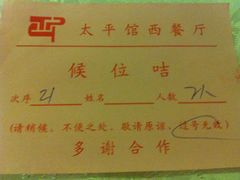 太平馆西餐厅
候位咭
次序 21 姓名 人数 2人
(请稍候。不便之处，敬请原谅，过号无效)
多谢合作